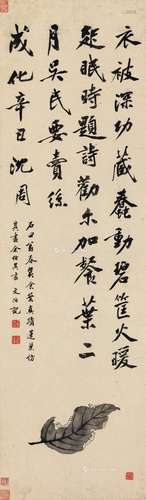 衣被深功藏蠢動碧筐火暖
起眠時題詩勸爾加餐葉二
月吳民要賣絲
成化辛丑沈周
石田翁春蠶食葉真蹟蓮巢仿
其畫余仿其書文治記